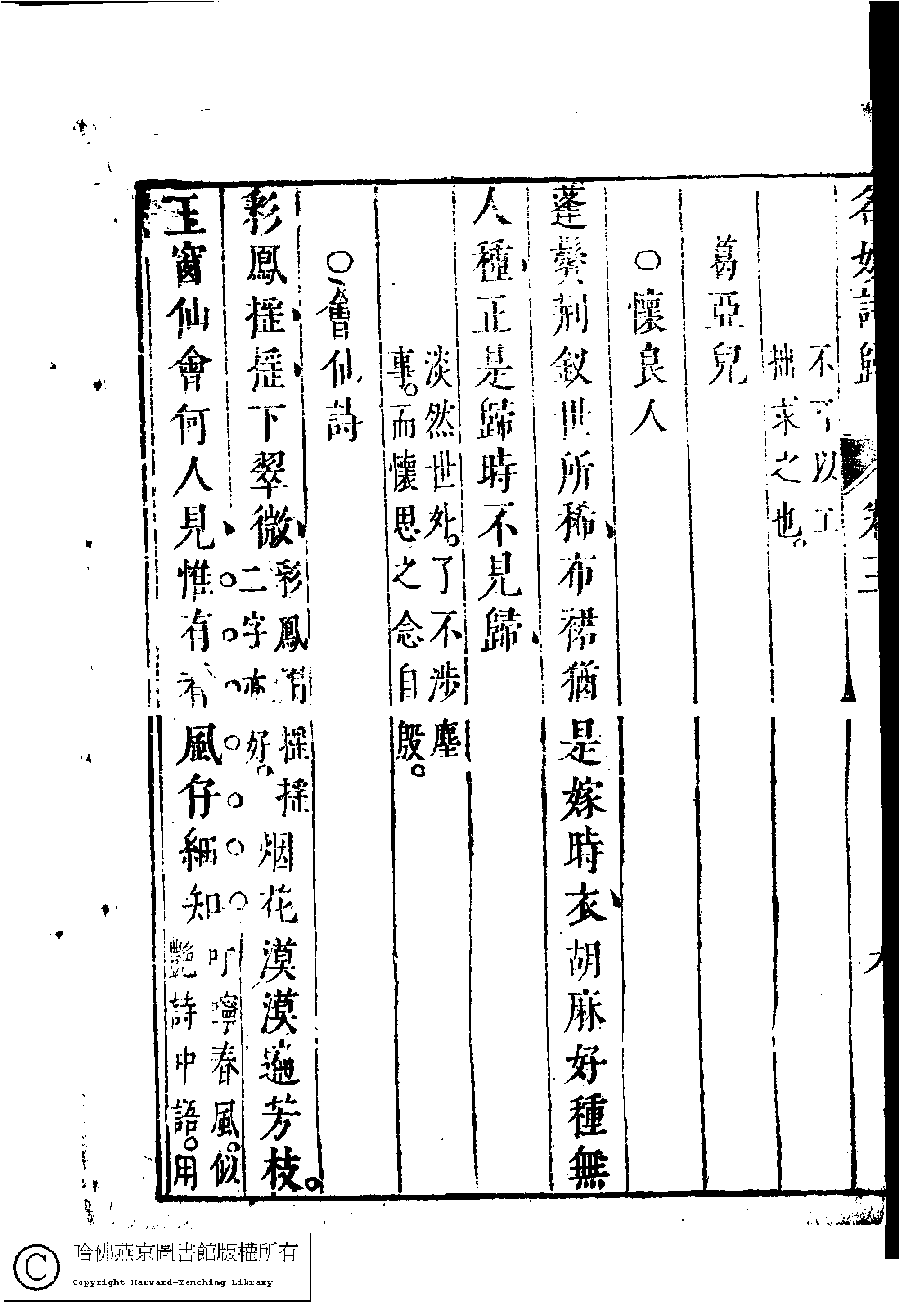 名媛詩歸　卷三
不了以工
拙求之也。
葛亞兒
○懷良人
蓬鬓荆釵世所稀布裙猶是嫁時衣胡麻好種無
人種正是歸時不見歸
淡然世外。了不涉塵
事。而懷思之念自殷。
○會仙詩
彩鳳搖搖下翠微
彩鳳用搖搖
二字亦好。
烟花漠漠遍芳枝。
玉窗仙會何人見惟有春風仔細知
叮嚀春風。似
艷詩中語。用
哈佛燕京圖書館版權所有
Copyright Harvard-Yenching Library